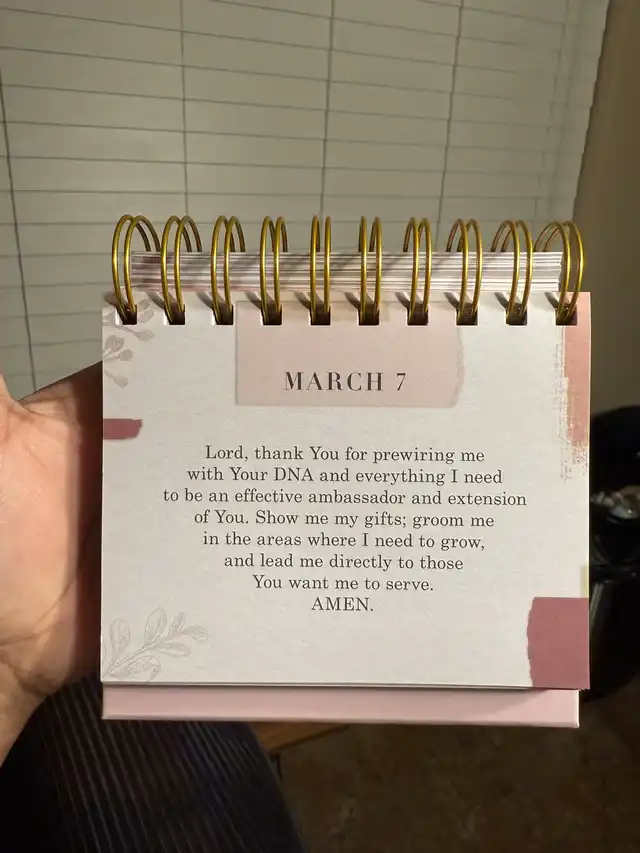 MARCH 7
Lord, thank You for prewiring me
with Your DNA and everything I need
to be an effective ambassador and extension
of You. Show me my gifts; groom me
in the areas where I need to grow,
and lead me directly to those
You want me to serve.
AMEN.